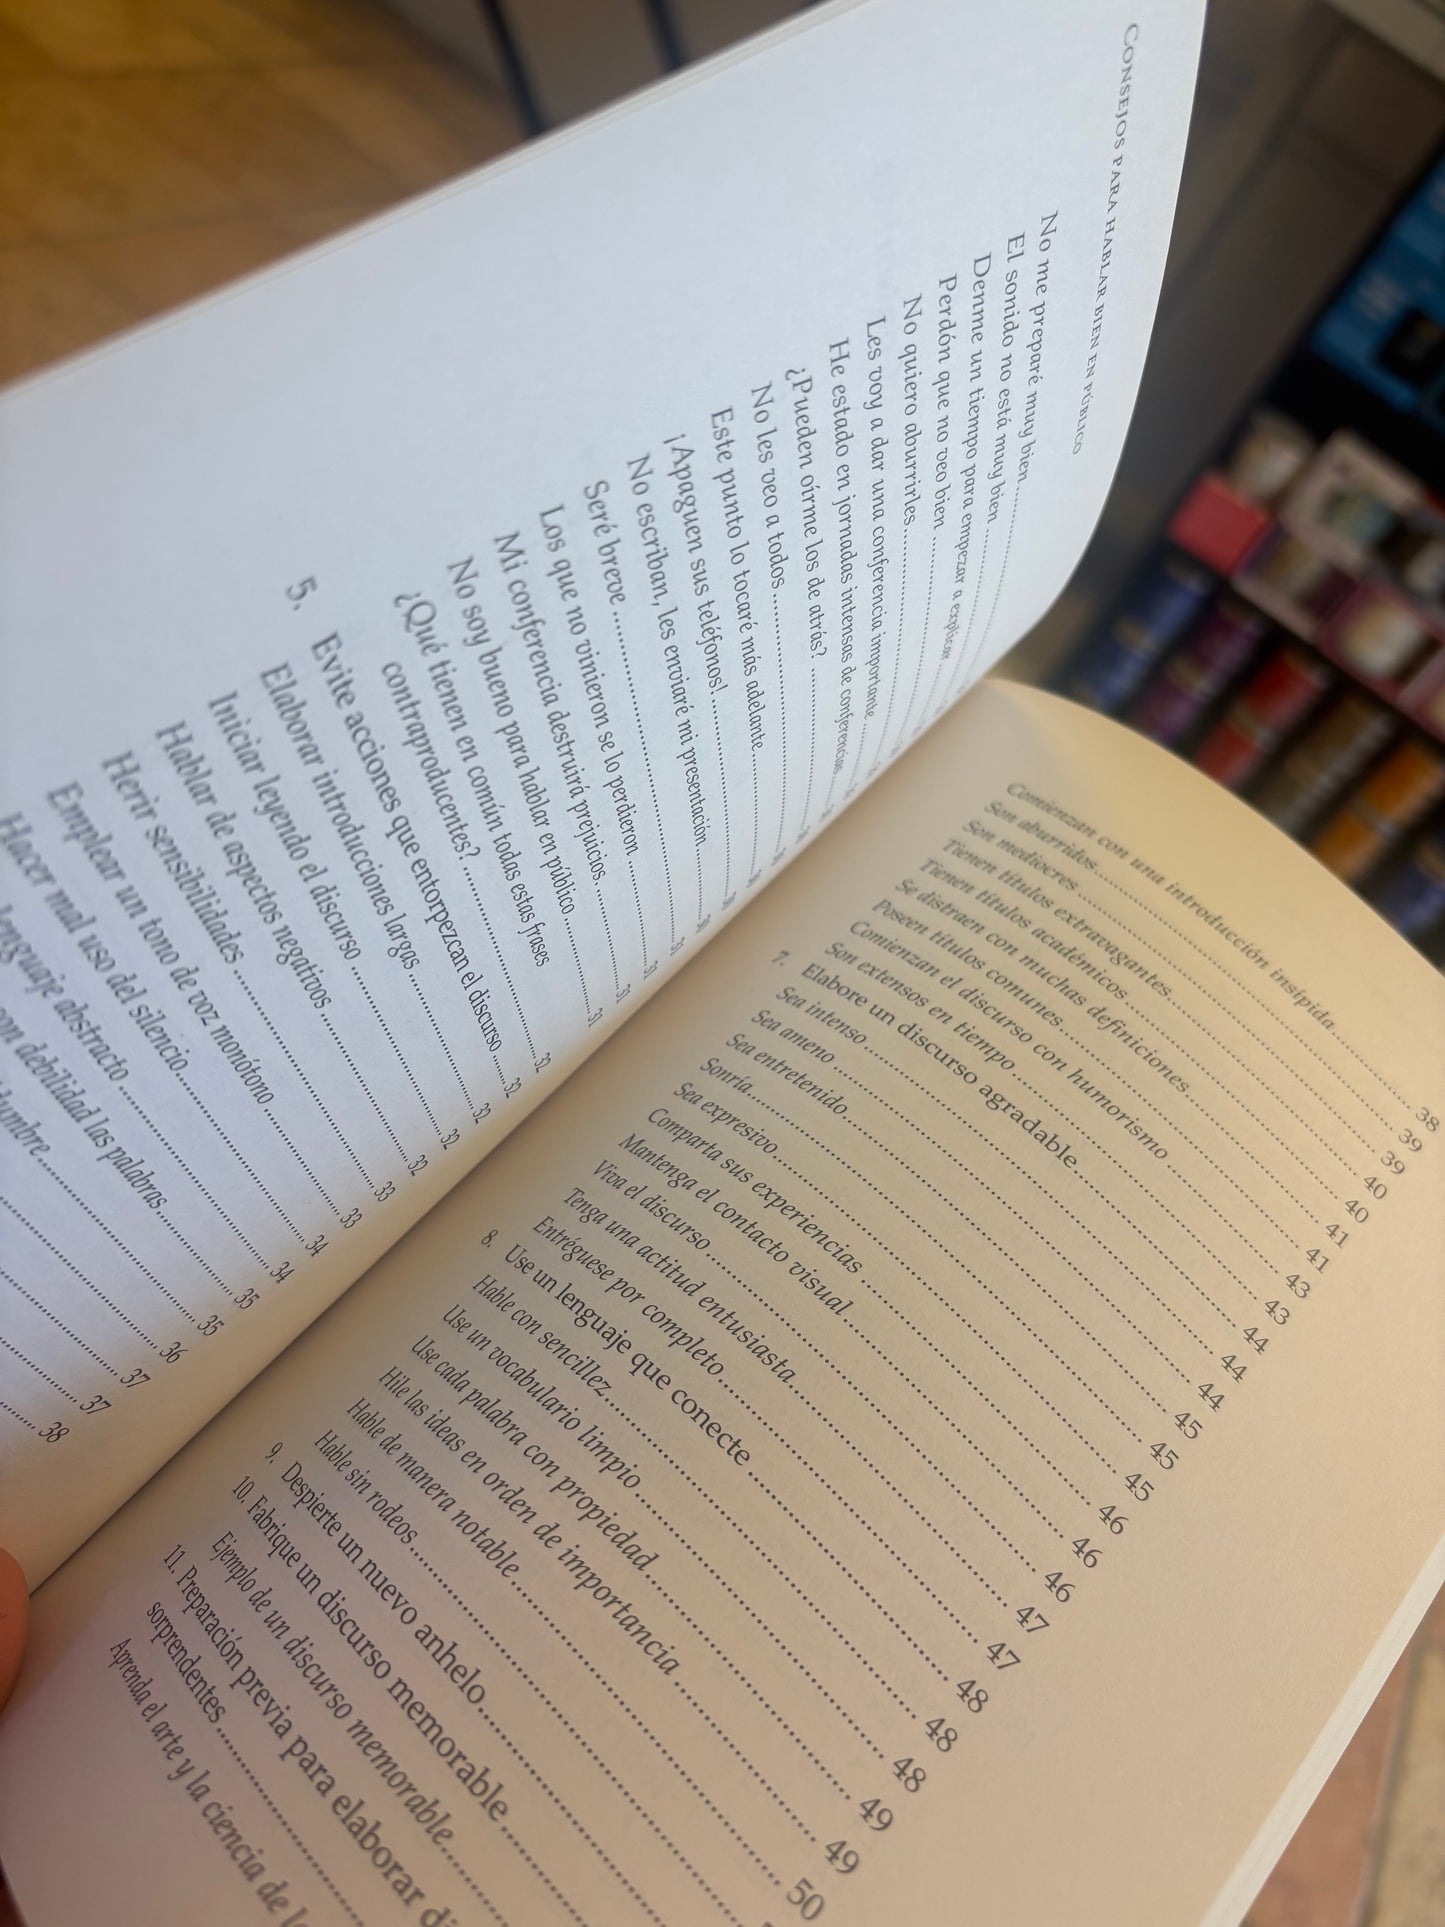 CONSEJOS PARA HABLAR BIEN EN PÚBLICO
No me preparé muy bien
El sonido no está muy bien
Denme un tiempo para empezar a explicar
Perdón que no veo bien
No quiero aburrirles
Les voy a dar una conferencia importante
He estado en jornadas intensas de conferencias
¿Pueden oírme los de atrás?
No les veo a todos
Este punto lo tocaré más adelante
¡Apaguen sus teléfonos!
No escriban, les enviaré mi presentación
Seré breve
Los que no vinieron se lo perdieron
Mi conferencia destruirá prejuicios
No soy bueno para hablar en público
¿Qué tienen en común todas estas frases
contraproducentes?
5. Evite acciones que entorpezcan el discurso
Elaborar introducciones largas
Iniciar leyendo el discurso
Hablar de aspectos negativos
Herir sensibilidades
Emplear un tono de voz monótono
Hacer mal uso del silencio
lenguaje abstracto
con debilidad las palabras
Comienzan con una introducción insípida 38
Son aburridos 39
Son mediocres 39
Tienen títulos extravagantes 40
Tienen títulos académicos 40
Se distraen con muchas definiciones 41
Poseen títulos comunes 41
Comienzan el discurso con humorismo 43
Son extensos en tiempo 43
7. Elabore un discurso agradable 44
Sea intenso 44
Sea ameno 44
Sea entretenido 45
Sonría 45
Sea expresivo 45
Comparta sus experiencias 46
Mantenga el contacto visual 46
Viva el discurso 46
Tenga una actitud entusiasta 47
Entréguese por completo 47
8. Use un lenguaje que conecte 48
Hable con sencillez 48
Use un vocabulario limpio 48
Use cada palabra con propiedad 49
Hile las ideas en orden de importancia 49
Hable de manera notable 50
Hable sin rodeos
9. Despierte un nuevo anhelo
10. Fabrique un discurso memorable
Ejemplo de un discurso memorable
11. Preparación previa para elaborar
sorprendentes
Aprenda el arte y la ciencia de